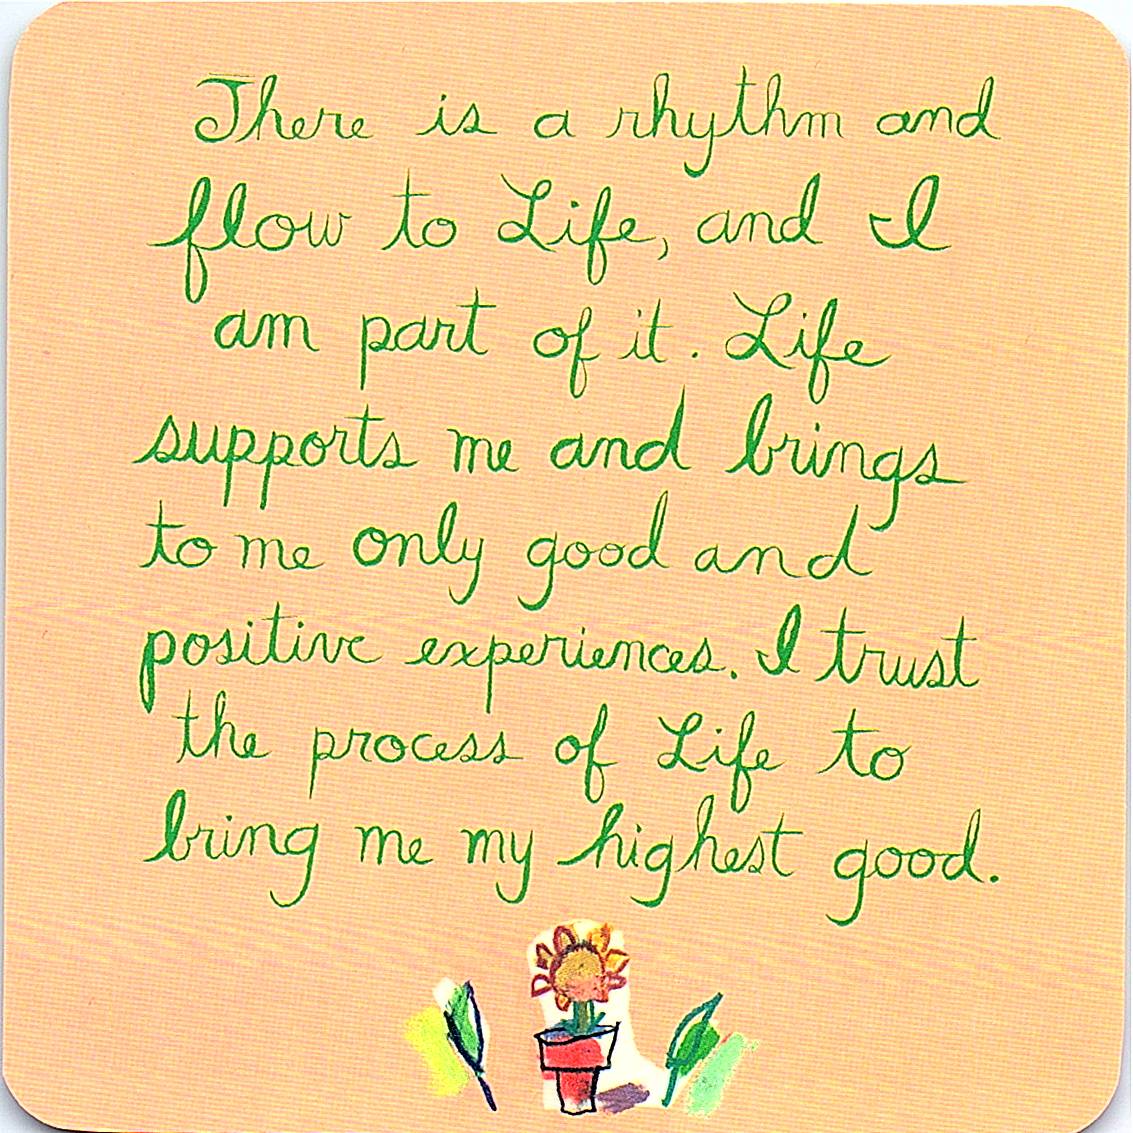 There is a rhythm and
flow to Life, and I
am part of it. Life
supports me and brings
to me only good and
positive experiences. I trust
the process of Life to
bring me my highest good.